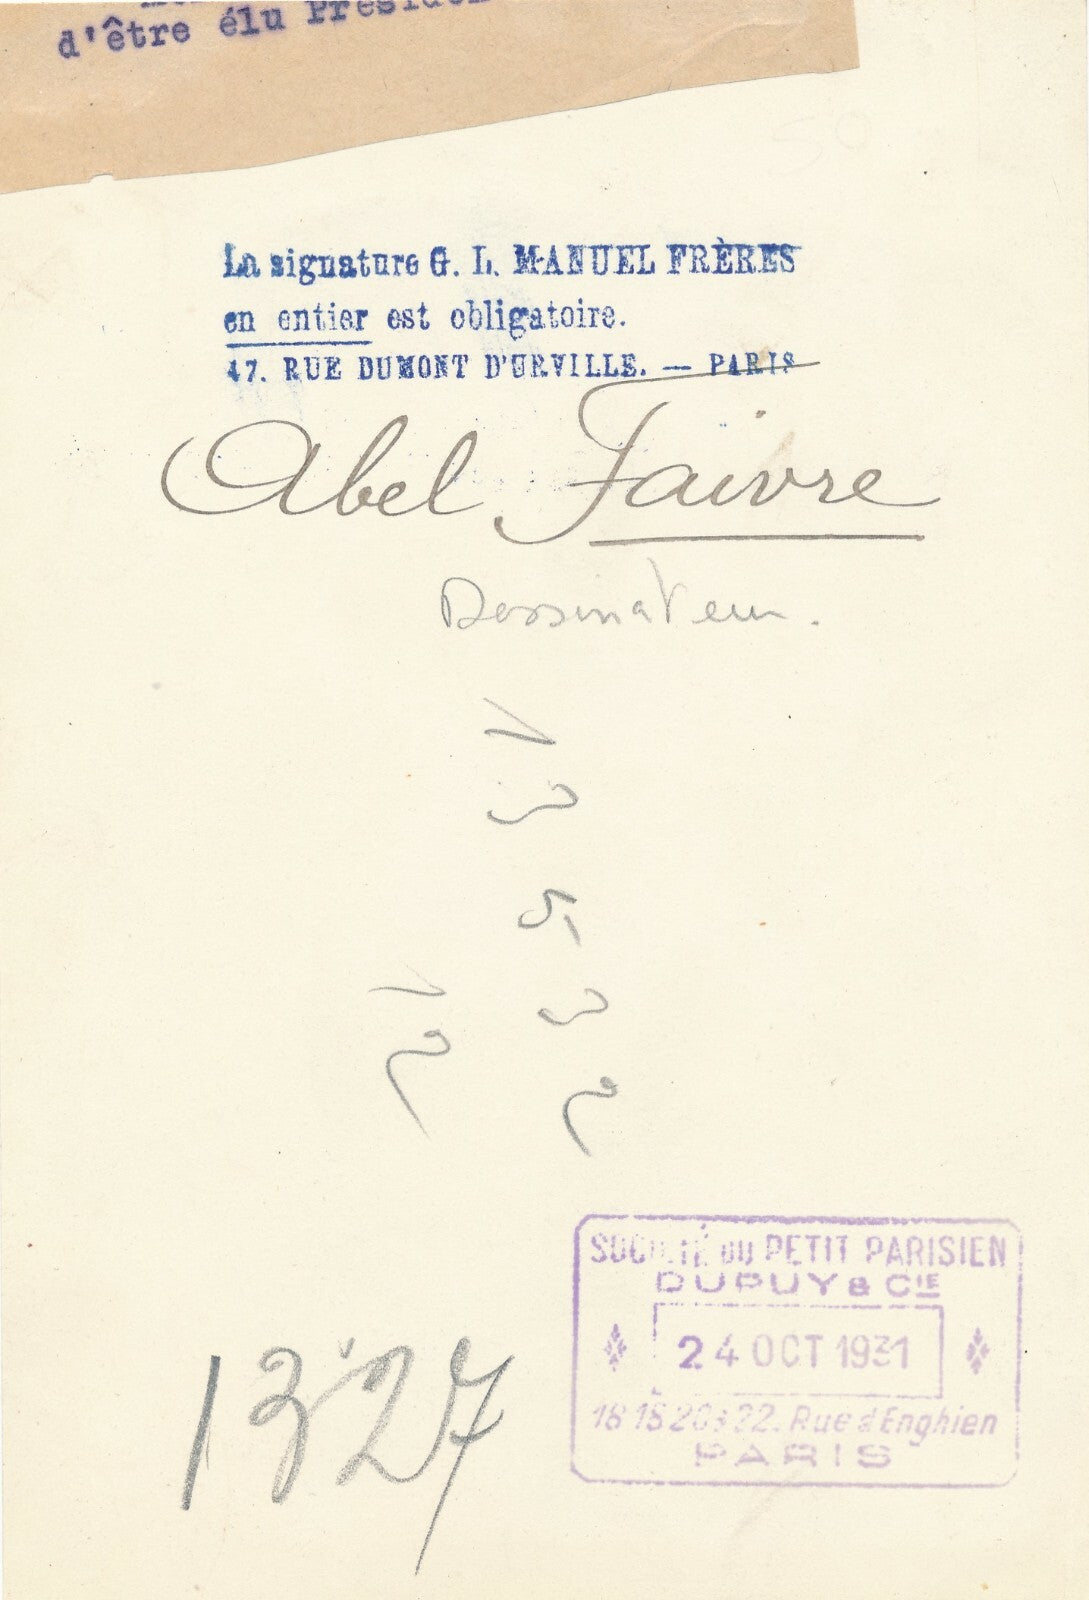 d'être élu Présiden
50
La signature G. L. MANUEL FRÈRES
en entier est obligatoire.
47. RUE DUMONT D'URVILLE. — PARIS
Abel Faivre
Dessinateur.
SOCIÉTÉ DU PETIT PARISIEN
DUPUY & CIE
24 OCT 1931
18 18 20 & 22. Rue d'Enghien
PARIS
1327